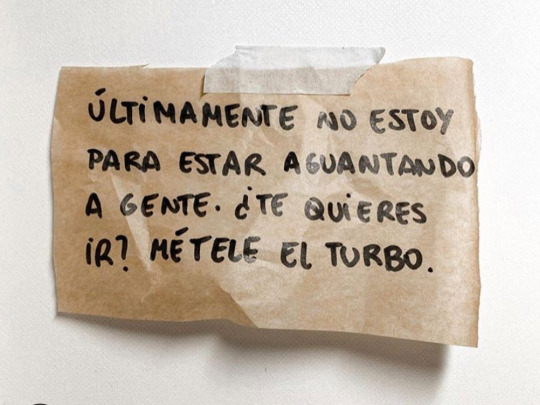 ÚLTIMAMENTE NO ESTOY
PARA ESTAR AGUANTANDO
A GENTE. ¿TE QUIERES
IR? MÉTELE EL TURBO.